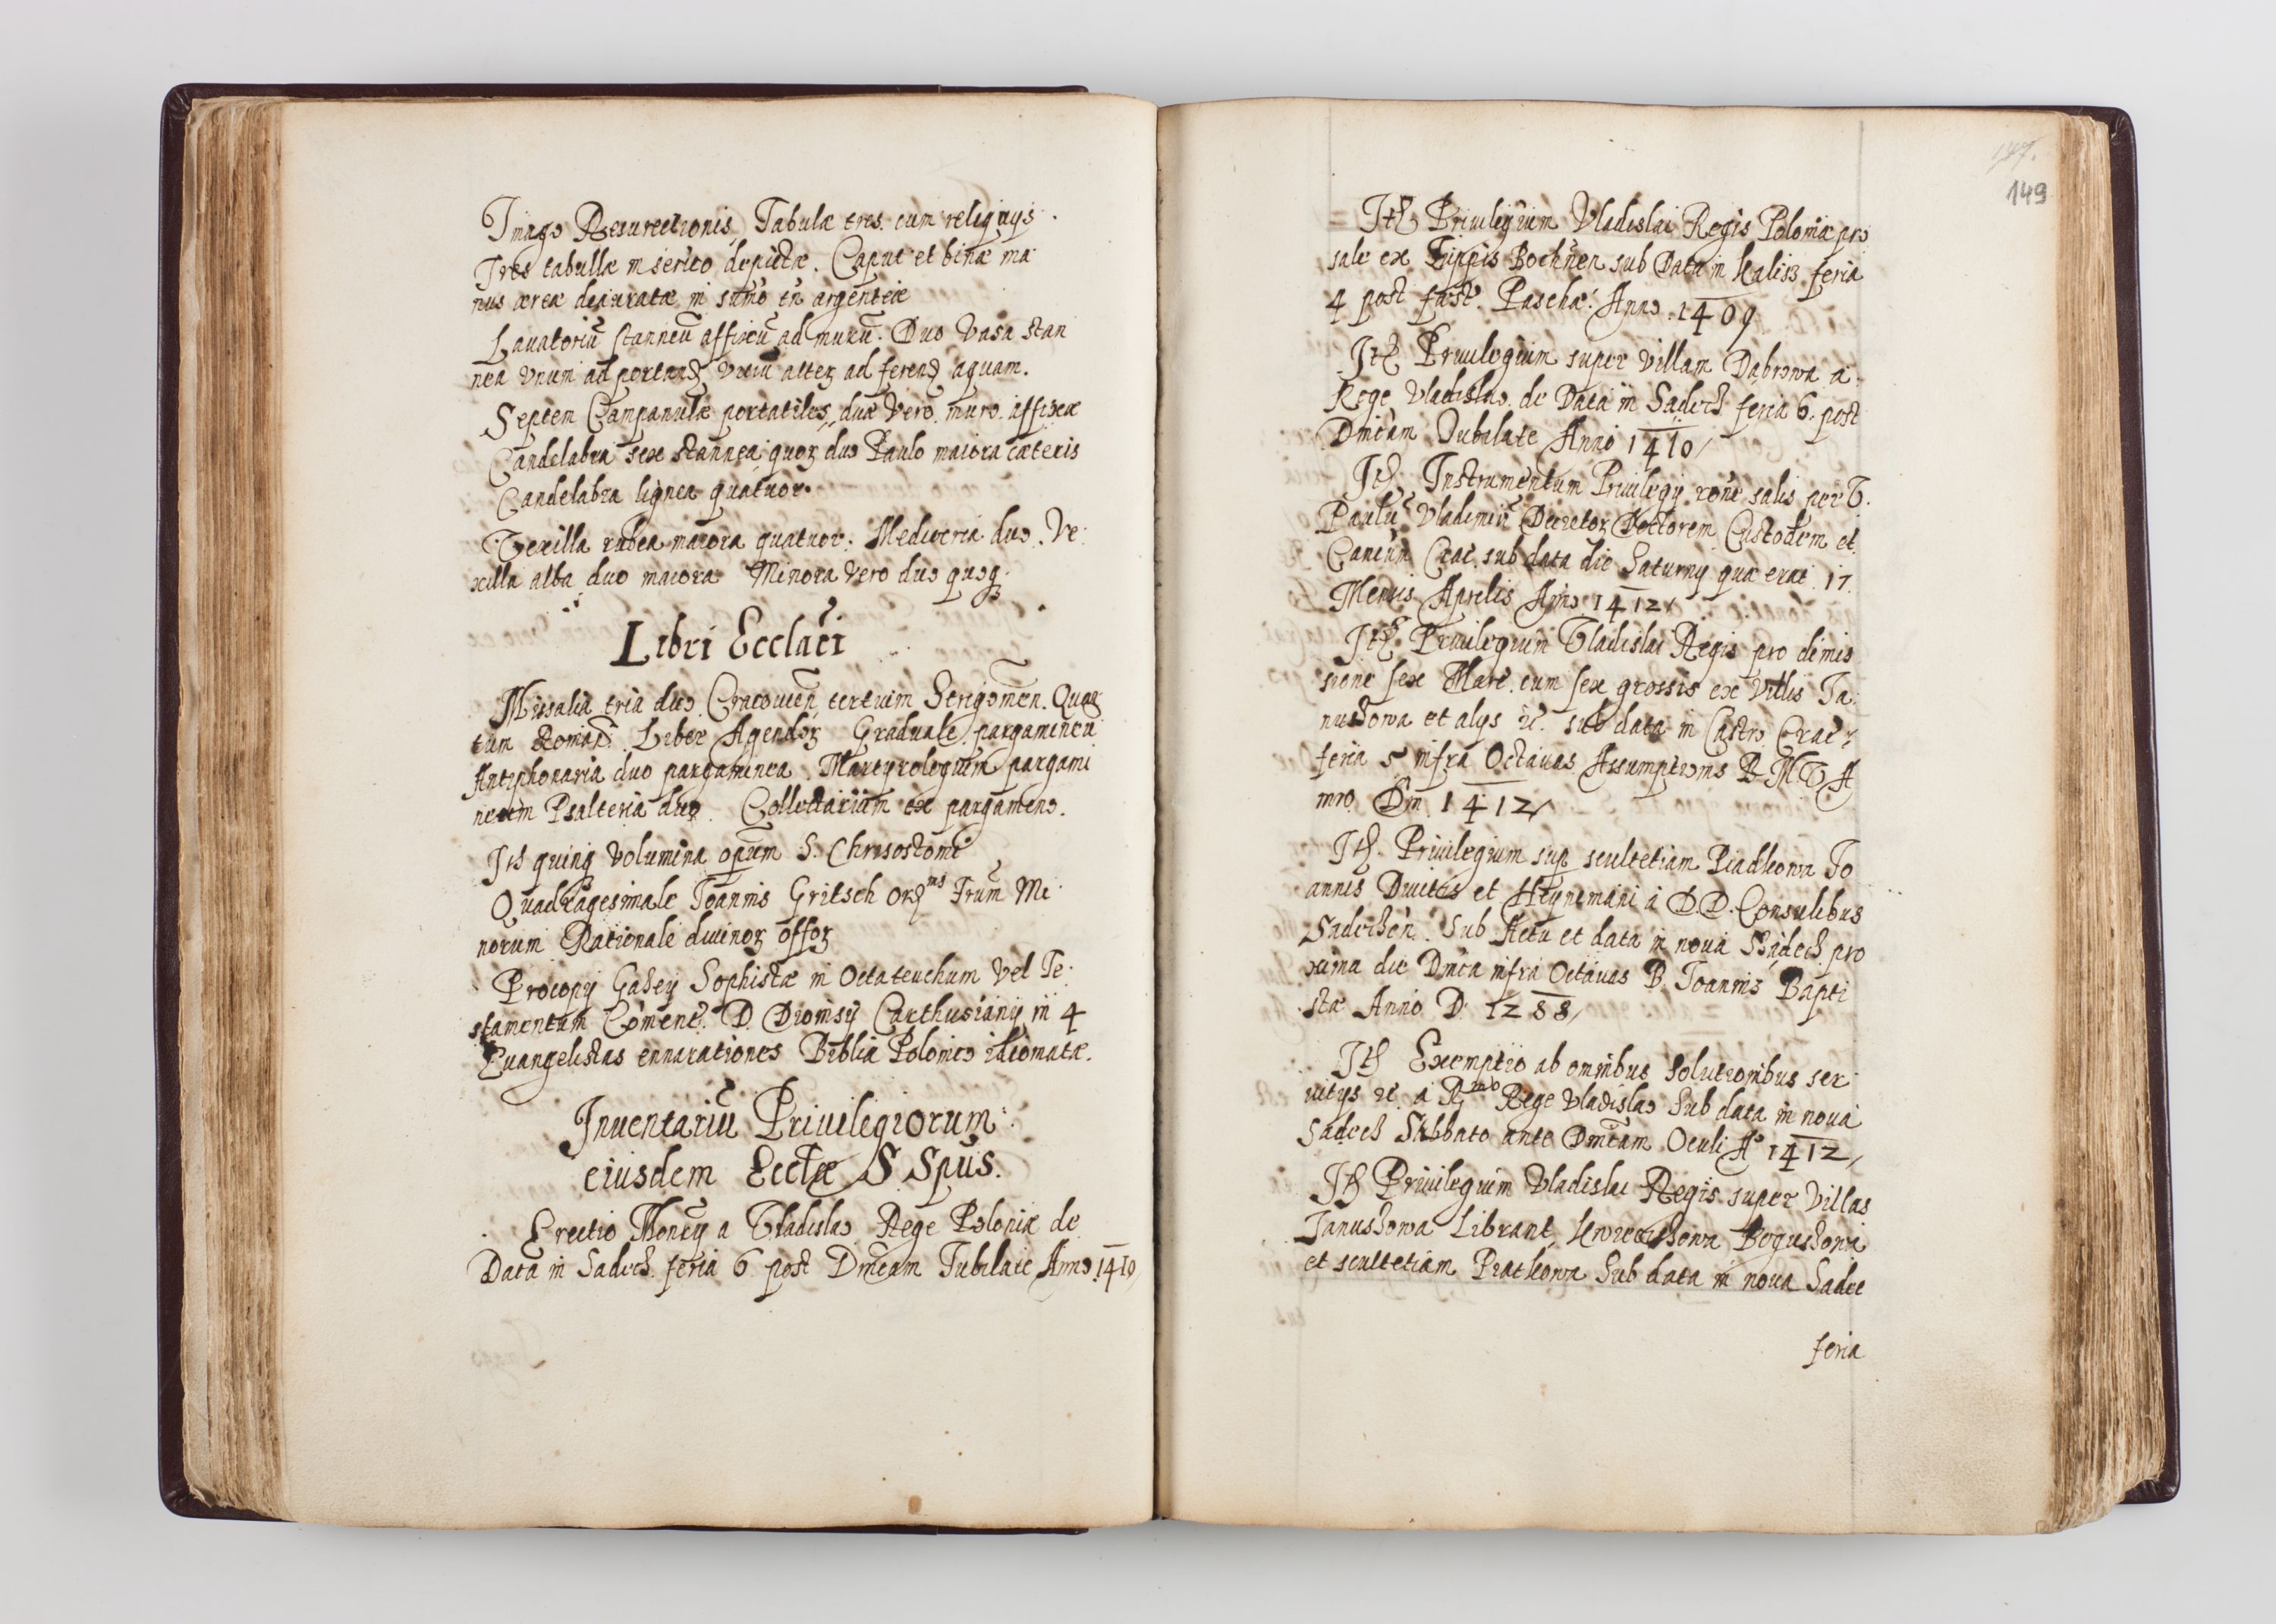 Imago Resurectionis, Tabulæ tres cum reliquijs.
Tres tabullæ in serico depictæ. Caput et binæ ma
nus æreæ deauratæ in sum̃o eñ argenteæ
Lauatoriũ stanneũ affixũ ad murũ. Duo Vasa stan
nea Vnum ad portand Vinũ alteꝝ ad ferend aquam.
Septem Campanulæ portatiles, duæ Vero muro affixæ
Candelabra sex stannea quoꝝ duo Paulo maiora cæteris
Candelabra lignea quatuor.
Vexilla rubea maiora quatuor. Mediocria duo. Ve
xilla alba duo maiora Minora Vero duo quoqꝫ
Libri Ecclãci
Missalia tria duo Cracouieñ tertium Strigomeñ. Quar
tum Roman. Liber Agendoꝝ Graduale pargamineũ
Antiphonaria duo pargaminea. Martyrologium pargami
neum Psalteria duo. Collectarium ex pargameno.
It quinqꝫ Volumina operum S. Chrisostomi
Quadragesimale Joannis Gritsch ord ns Frum̃ Mi
norum Rationale diuinoꝝ offoꝝ
Procopij Gazey Sophistæ in Octateuchum Vel Te
stamentum Com̃ent. D. Dionisij Carthusiany in 4
Euangelistas ennarationes Biblia Polonico idiomatæ.
Inuentariũ Priuilegiorum
eiusdem Ecclæ S Spũs.
Erectio Moñrij a Vladislao Rege Poloniæ de
Data in Sadecz feria 6 post Dñicam Iubilate Anno 1410
149
It Priuilegium Vladislai Regis Poloniæ pro
sale ex Zuppis Bochnen sub Data in Kalisz feria
4 post fæst Paschæ Anno 1409
It Priuilegium super Villam Dabrowa a
Rege Vladislao de Data in Sadecz feria 6. post
Dmĩcam Iubilate Anno 1410
It Instrumentum Priuilegij roñe salis per V.
Paulũ Vladimiri Decretoꝝ Doctorem Custodem et
Cancũn Crac. sub data die Saturny quæ erat 17.
Mensis Aprilis Anno 1412
It Priuilegium Vladislai Regis pro dimis
sione sex Marc. cum sex grossis ex Villis Ja
nuszowa et alys etc. sub data in Castro Crac:
feria 5 infra Octauas Assumptionis B. M. V. A
nno Dni 1412
It Priuilegium sup scultetiam Piadkowa Jo
annis Diuitis et Heynemani à D.D. Consulibus
Sadeczen. Sub Actu et data in noua Sądecz pro
xima die Dnica infra Octauas B. Joannis Bapti
stæ Anno D. 1288
It Exemptio ab omnibus Solutionibus ser
uitijs etc a Rmo Rege Vladislao Sub data in noua
Sądecz Sabbato ante Dmicam Oculi Ao 1412
It Priuilegium Vladislai Regis super Villas
Januszowa Librant, Kwieciszowa Boguszowa
et scultetiam Piatkowa Sub data in noua Sade
feria